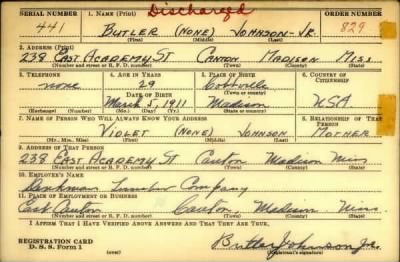 Discharged
SERIAL NUMBER 1. NAME (Print) ORDER NUMBER
441 BUTLER (NONE) JOHNSON-JR. 829
(First) (Middle) (Last)
2. ADDRESS (Print)
238 EAST ACADEMY ST CANTON MADISON MISS.
(Number and street or R. F. D. number) (Town) (County) (State)
3. TELEPHONE 4. AGE IN YEARS 5. PLACE OF BIRTH 6. COUNTRY OF CITIZENSHIP
none 29
DATE OF BIRTH
March 5, 1911 Madison USA
(Exchange) (Number) (Mo.) (Day) (Yr.) (State or country)
7. NAME OF PERSON WHO WILL ALWAYS KNOW YOUR ADDRESS 8. RELATIONSHIP OF THAT PERSON
VIOLET (NONE) JOHNSON MOTHER
(Mr., Mrs., Miss) (First) (Middle) (Last)
9. ADDRESS OF THAT PERSON
238 EAST ACADEMY ST Canton Madison Miss
(Number and street or R. F. D. number) (Town) (County) (State)
10. EMPLOYER'S NAME
Lumber Company
11. PLACE OF EMPLOYMENT OR BUSINESS
East Canton Canton Madison Miss.
(Number and street or R. F. D. number) (Town) (County) (State)
I AFFIRM THAT I HAVE VERIFIED ABOVE ANSWERS AND THAT THEY ARE TRUE.
REGISTRATION CARD
D. S. S. Form 1 (over) Butler Johnson Jr.
(Registrant's signature)